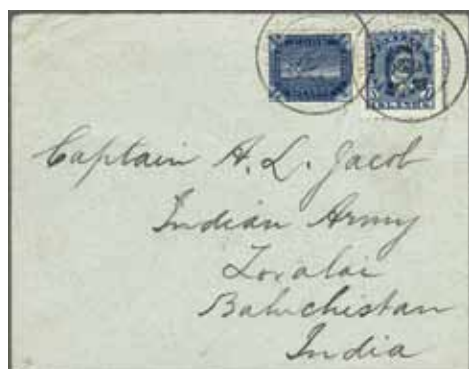 Captain A. L. Jacob
Indian Army
Loralai
Baluchistan
India
ISLANDS